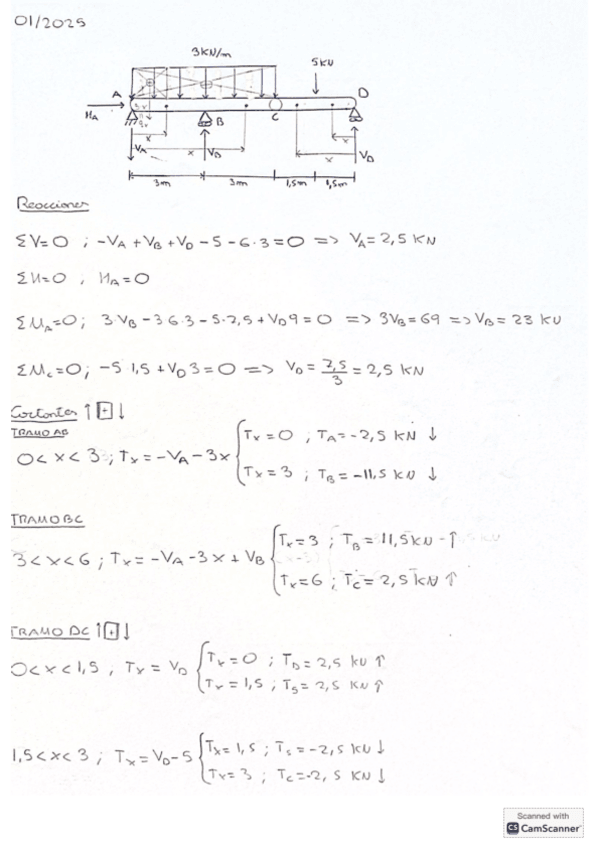 01/2025
3KN/m
5KN
A
D
HA
B
C
VA
x
x
VB
x
x
VD
3m
3m
1,5m
1,5m
Reacciones
ΣV=0 ; -VA + VB + VD - 5 - 6·3 = 0 => VA = 2,5 KN
ΣH=0 , HA = 0
ΣMA=0; 3·VB - 3·6·3 - 5·7,5 + VD 9 = 0 => 3VB = 69 => VB = 23 KN
ΣMC=0; -5 1,5 + VD 3 = 0 => VD = 7,5/3 = 2,5 KN
Cortantes ↑[+]↓
TRAMO AB
0 < x < 3 ; Tx = -VA - 3x { Tx = 0 ; TA = -2,5 KN ↓
Tx = 3 ; TB = -11,5 KN ↓
TRAMO BC
3 < x < 6 ; Tx = -VA - 3x + VB { Tx = 3 ; TB = 11,5 KN - ↑
Tx = 6 ; TC = 2,5 KN ↑
TRAMO DC ↑[+]↓
0 < x < 1,5 , Tx = VD { Tx = 0 ; TD = 2,5 KN ↑
Tx = 1,5 ; T5 = 2,5 KN ↑
1,5 < x < 3 ; Tx = VD - 5 { Tx = 1,5 ; T5 = -2,5 KN ↓
Tx = 3 ; TC = -2,5 KN ↓
Scanned with
CS CamScanner